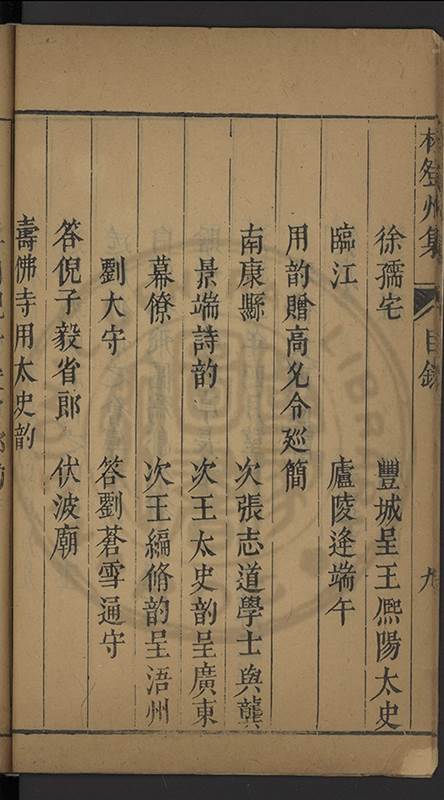 林登州集 目錄 九
徐孺宅 豐城呈王熈陽太史
臨江 廬陵逢端午
用韵贈高名令廵簡
南康縣 次張志道學士與龔
景端詩韵 次王太史韵呈廣東
幕僚 次王編脩韵呈浯州
劉大守 答劉蒼雪通守
答倪子毅省郎 伏波廟
壽佛寺用太史韵